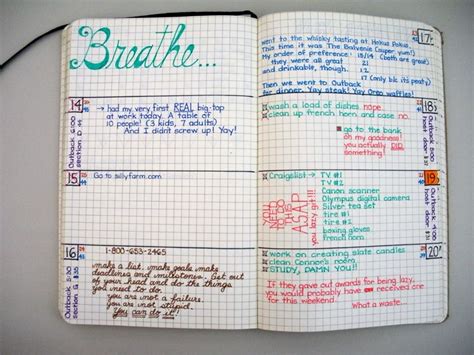 Breathe...
14
had my very first REAL big-top
at work today. A table of
10 people! (3 kids, 7 adults)
And I didn't screw up! Yay!
Outback 5:00
section D 44
15
Go to sillyfarm.com.
16
1-800-653-2465
make a list, make goals, make
deadlines and milestones. Get out
of your head and do the things
you need to do.
you are not a failure.
you are not stupid.
You can do it!
Outback 5:30
section G $35
went to the whisky tasting at Hokus Pokus.
This time it was The Balvenie (super yum!)
My preferences: 15/14 (both are great)
they were all great 12
and drinkable, though. 17 (only b/c its peaty)
Then we went to Outback
for dinner. Yay steak! Yay Oreo waffles!
17
wash a load of dishes nope.
clean up french horn and case no.
go to the bank
oh my goodness!
you actually DID
something!
18
Outback 5:00
host door
Craigslist
TV #1
TV #2
Canon scanner
Olympus digital camera
Silver tea set
tire
boxing gloves
french horn
YOU
NEED
TO DO
THIS
ASAP
you lazy git!!!
19
Outback
host door
work on creating slate candles
clean Connor's room
STUDY, DAMN YOU!!
20
If they gave out awards for being lazy,
you would probably have received one
for this weekend.
What a waste...